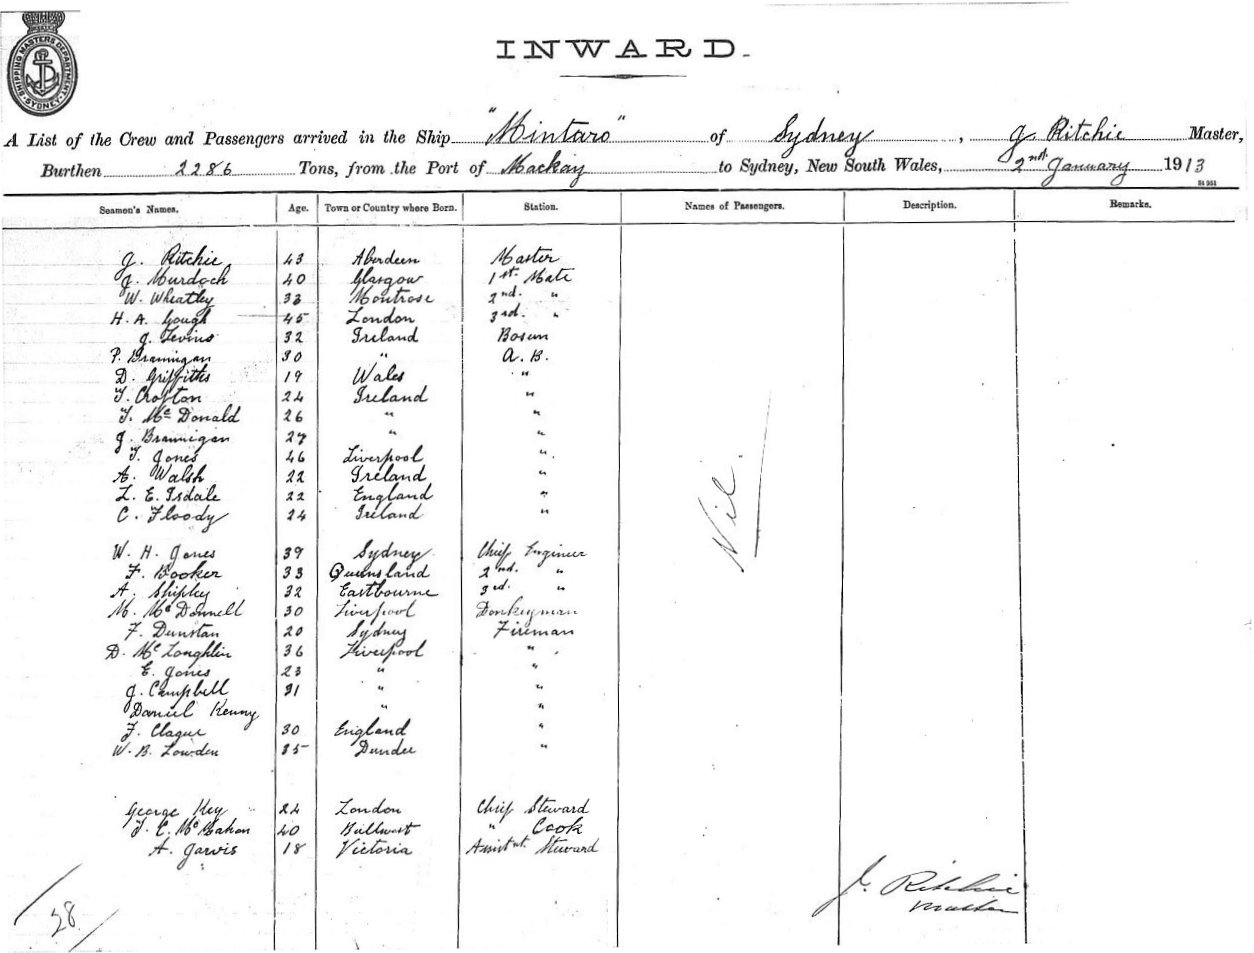 SHIPPING MASTERS DEPARTMENT SYDNEY
INWARD.
A List of the Crew and Passengers arrived in the Ship "Mintaro" of Sydney, J. Ritchie Master,
Burthen 2286 Tons, from the Port of Mackay to Sydney, New South Wales, 2nd January 1913
Seamen's Names. Age. Town or Country where Born. Station. Names of Passengers. Description. Remarks.
J. Ritchie 43 Aberdeen Master
J. Murdoch 40 Glasgow 1st Mate
W. Wheatley 33 Montrose 2nd "
H. A. Gough 45 London 3rd "
J. Levins 32 Ireland Bosun
P. Brannigan 30 " A.B.
D. Griffiths 19 Wales "
T. Crofton 24 Ireland "
T. McDonald 26 " "
J. Brannigan 27 " "
T. Jones 46 Liverpool "
A. Walsh 22 Ireland "
L. E. Isdale 22 England "
C. Floody 24 Ireland "
Nil.
W. H. Jones 39 Sydney Chief Engineer
F. Booker 33 Queensland 2nd "
A. Shipley 32 Eastbourne 3rd "
M. McDonnell 30 Liverpool Donkeyman
F. Dunstan 20 Sydney Fireman
D. McLoughlin 36 Liverpool "
E. Jones 23 " "
J. Campbell 31 " "
Daniel Kenny " "
F. Clague 30 England "
W. B. Lowden 35 Dundee "
George Key 24 London Chief Steward
T. C. McMahon 40 " Cook
A. Jarvis 18 Victoria Assistnt. Steward
J. Ritchie
Master
28